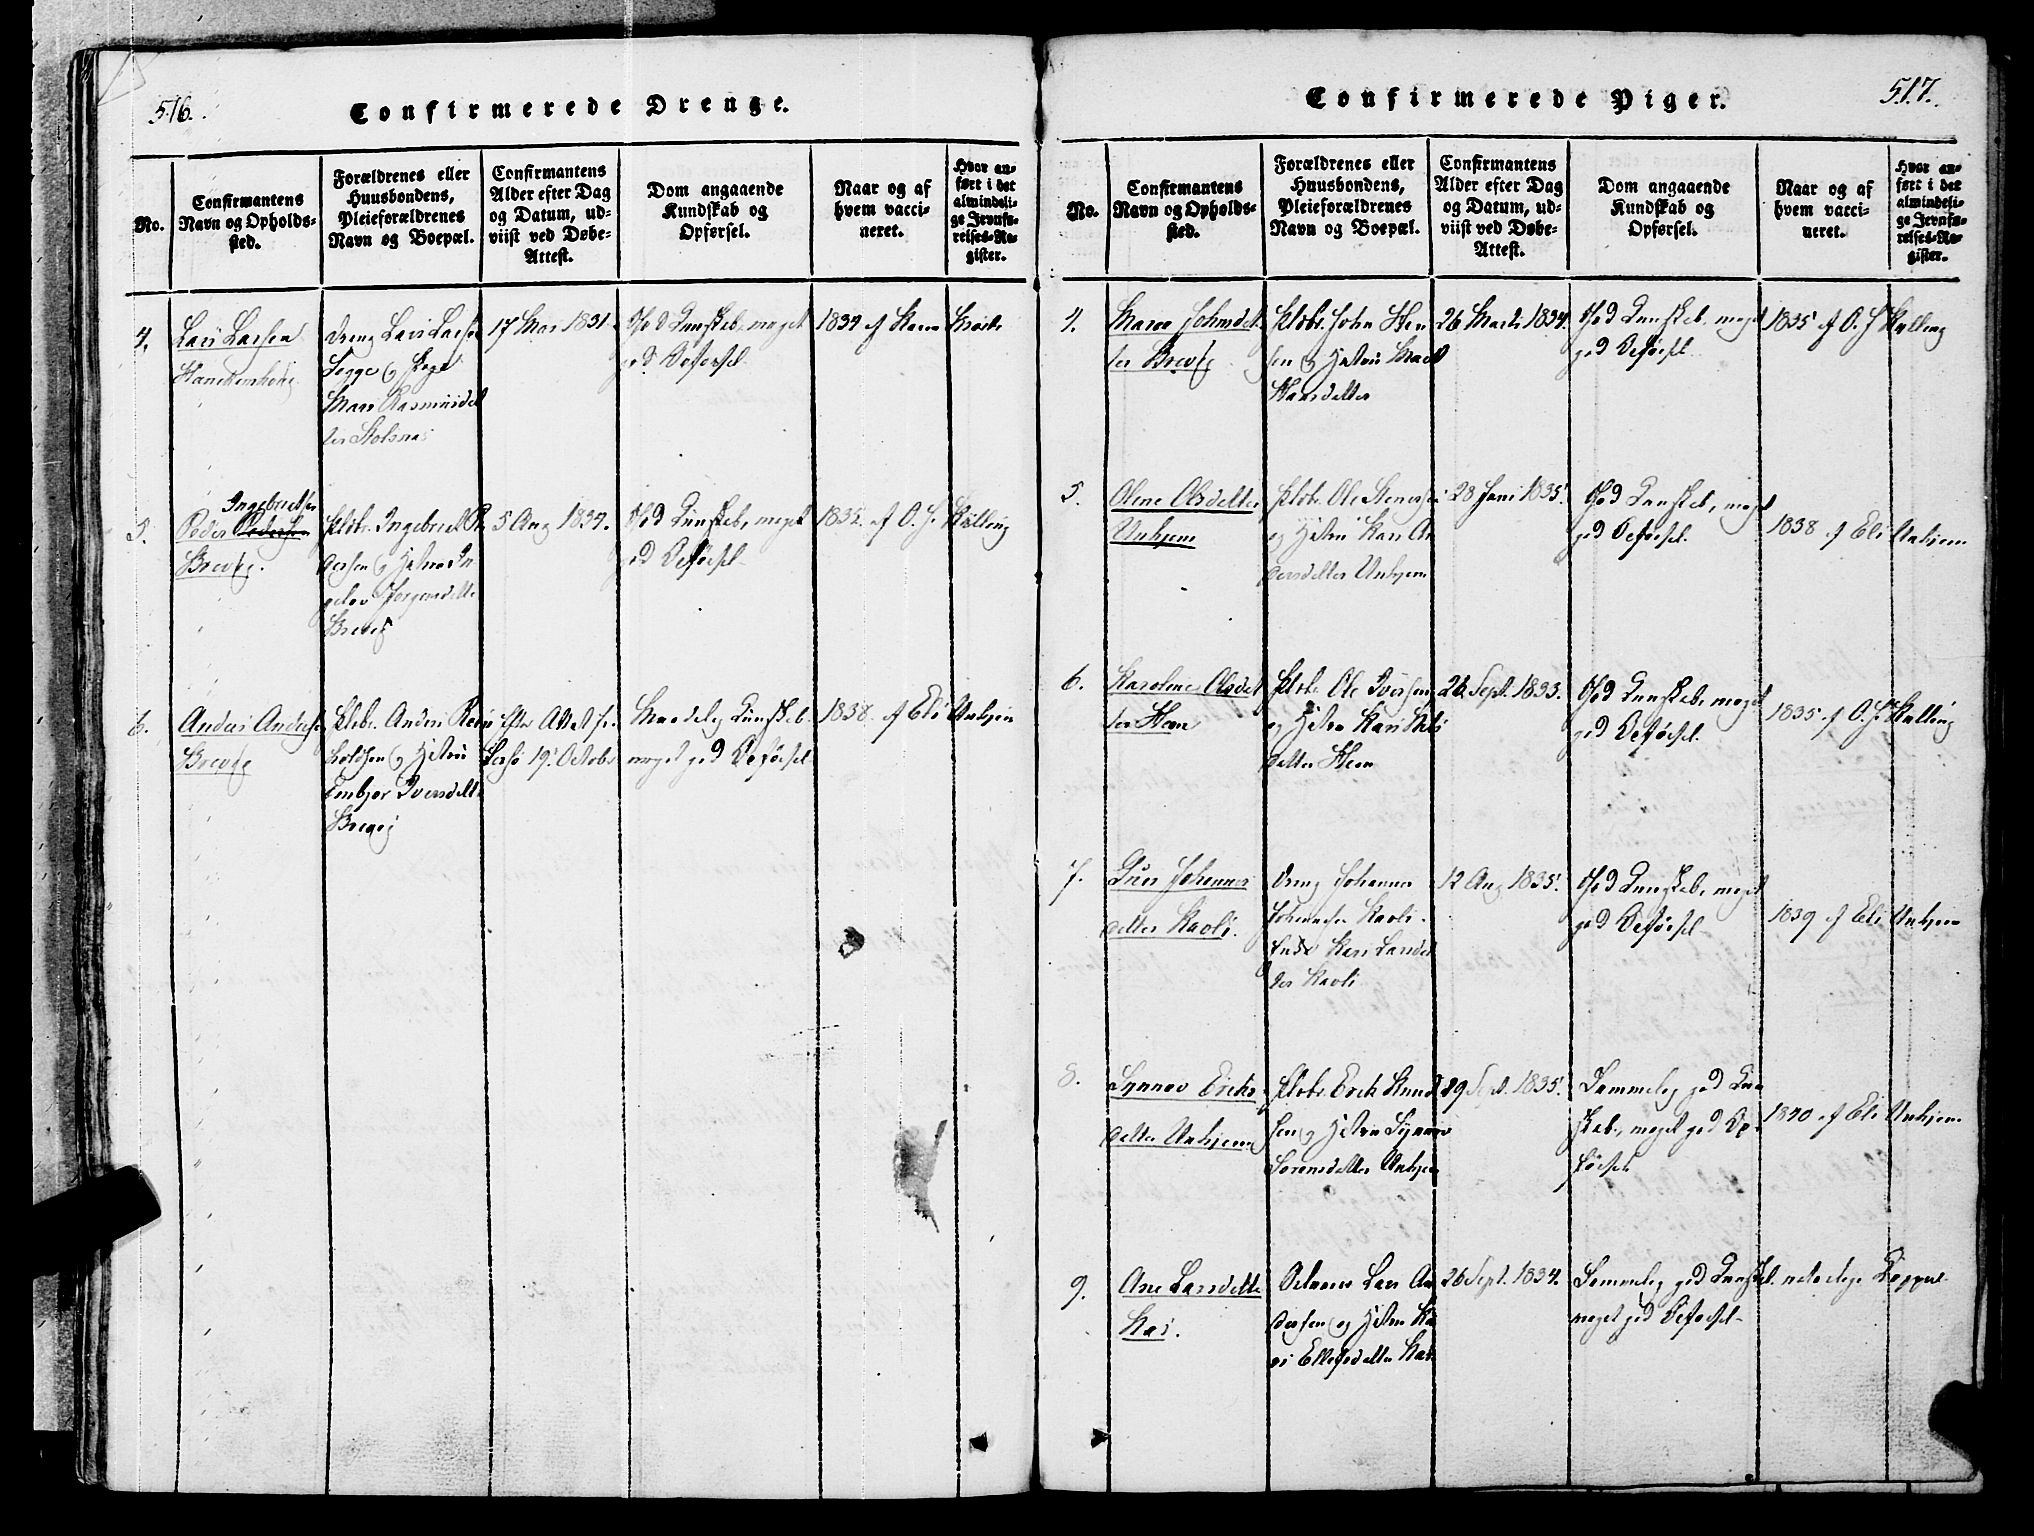 516.
Confirmerede Drenge.
No.
Confirmantens
Navn og Opholds-
sted.
Forældrenes eller
Huusbondens,
Pleieforældrenes
Navn og Boepæl.
Confirmantens
Alder efter Dag
og Datum, ud-
viist ved Døbe-
Attest.
Dom angaaende
Kundskab og
Opførsel.
Naar og af
hvem vacci-
neret.
Hvor an-
ført i det
almindeli-
ge Jevnfø-
relses-Re-
gister.
4.
Lars Larsen
Dreng Lars Larsen
17 Mai 1831.
God Kundskab, meget
god Opførsel
1834 af
Mari Rasmusdat
ter Stolsnes
5.
Ingebrectsen
Peder Pedersen
Brevig.
Plbr. Ingebrect Pe
dersen og Hstru In
geboe Jørgensdatter
Brevig
5 Aug 1834.
God Kundskab, meget
god Opførsel
1835. af O. J. Kølling
6.
Anders Andersen
Brevig
Plbr. Anders Rein
holdsen og Hstru
Embjør Iversdatter
Brevig
19. Octobr
Maadelig Kundskab
meget god Opførsel
1838. af Eli Unhjem
Confirmerede Piger.
517.
No.
Confirmantens
Navn og Opholds-
sted.
Forældrenes eller
Huusbondens,
Pleieforældrenes
Navn og Boepæl.
Confirmantens
Alder efter Dag
og Datum, ud-
viist ved Døbe-
Attest.
Dom angaaende
Kundskab og
Opførsel.
Naar og af
hvem vacci-
neret.
Hvor an-
ført i det
almindeli-
ge Jevnfø-
relses-Re-
gister.
4.
Maren Johnsdat
ter Brevig
Plbr. John Han
sen og Hstru Marit
Hansdatter
26 Marts 1834.
God Kundskab, meget
god Opførsel.
1835 af O. J. Kølling
5.
Olene Olsdatter
Unhjem
Plbr. Ole Stenersen
og Hstru Kari An
dersdatter Unhjem
28 Juni 1835.
God Kundskab, meget
god Opførsel.
1838 af Eli Unhjem
6.
Karoline Olsdat
ter Heen
Plbr. Ole Iversen
og Hstru Kari Nils
datter Heen
26 Sept. 1833.
God Kundskab, meget
god Opførsel.
1835 af O. J. Kølling
7.
Guri Johannes
datter Kavli.
Dreng Johannes
Johannesen Kavli.
Kari Larsdat
ter Kavli
12 Aug 1835.
God Kundskab, meget
god Opførsel
1839 af Eli Unhjem
8.
Synnøv Erichs
datter Unhjem
Plbr. Erich Knud
sen og Hstru Synnøv
Sørensdatter Unhjem
29 Sept. 1835.
Temmelig god Kund
skab, meget god Op
førsel
1840 af Eli Unhjem
9.
Ane Larsdatter
Kas.
Lars An
dersen og Hstru Ka
ri Ellefsdatter Kas
26 Sept. 1834.
Temmelig god Kundskab.
meget god Opførsel
naturlige Kopper